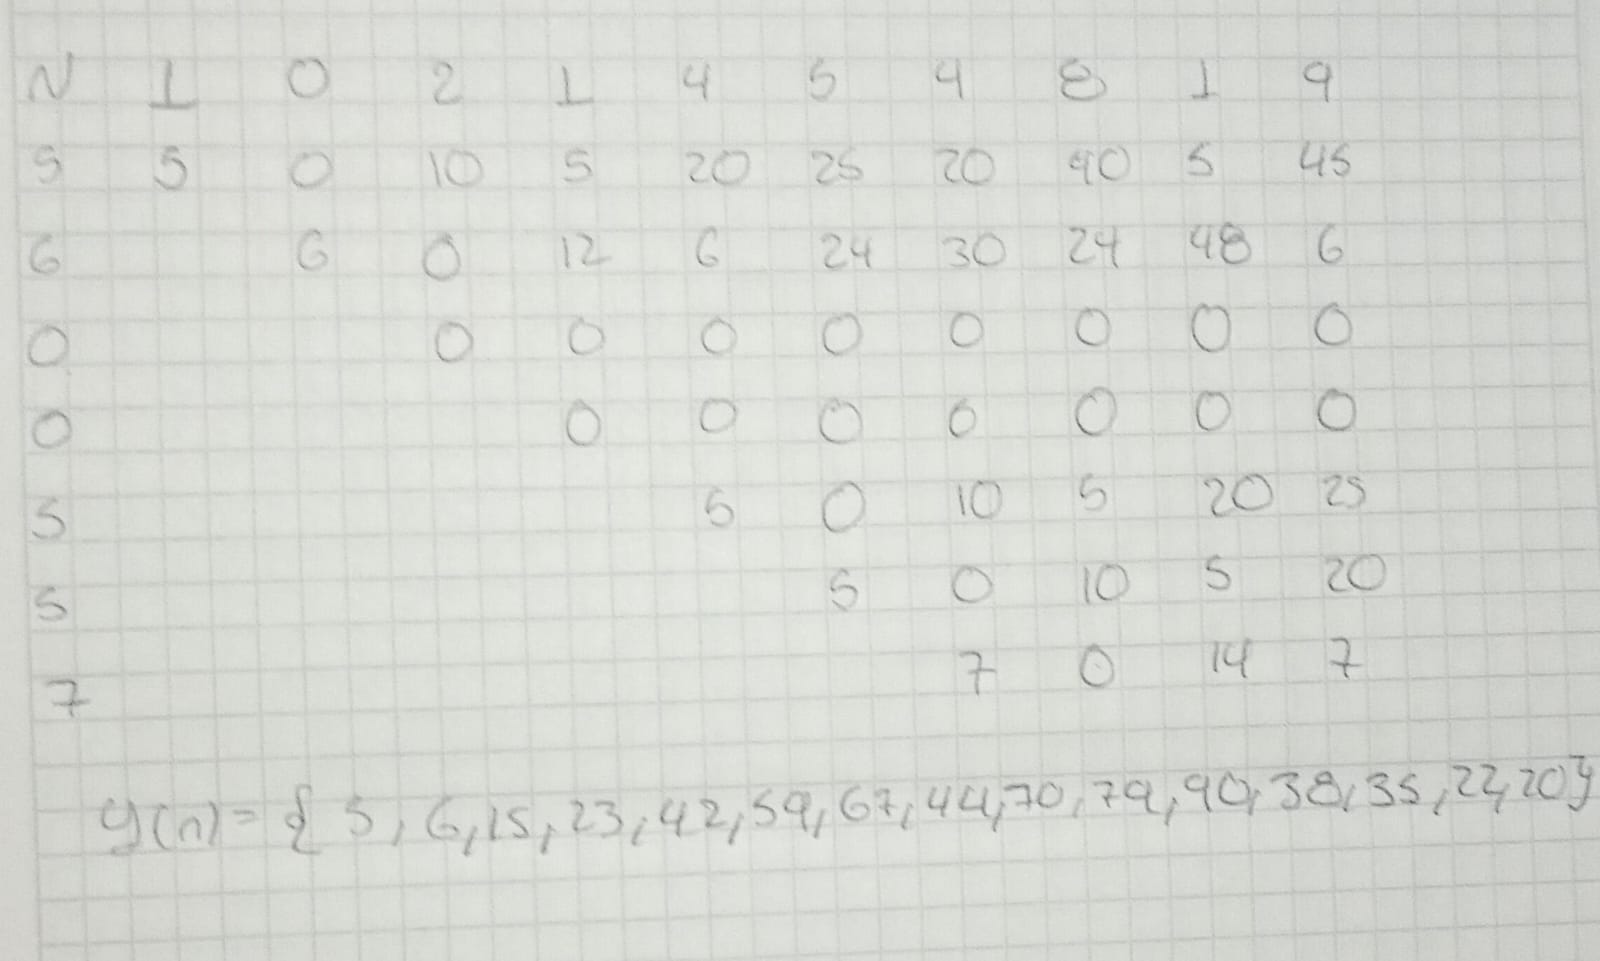 N 1 0 2 1 4 5 4 8 1 9
5 5 0 10 5 20 25 20 40 5 45
6 6 0 12 6 24 30 24 48 6
0 0 0 0 0 0 0 0 0
0 0 0 0 0 0 0 0
5 5 0 10 5 20 25
5 5 0 10 5 20
7 7 0 14 7
y(n) = { 5, 6, 15, 23, 42, 59, 67, 44, 70, 79, 90, 38, 35, 22, 20}